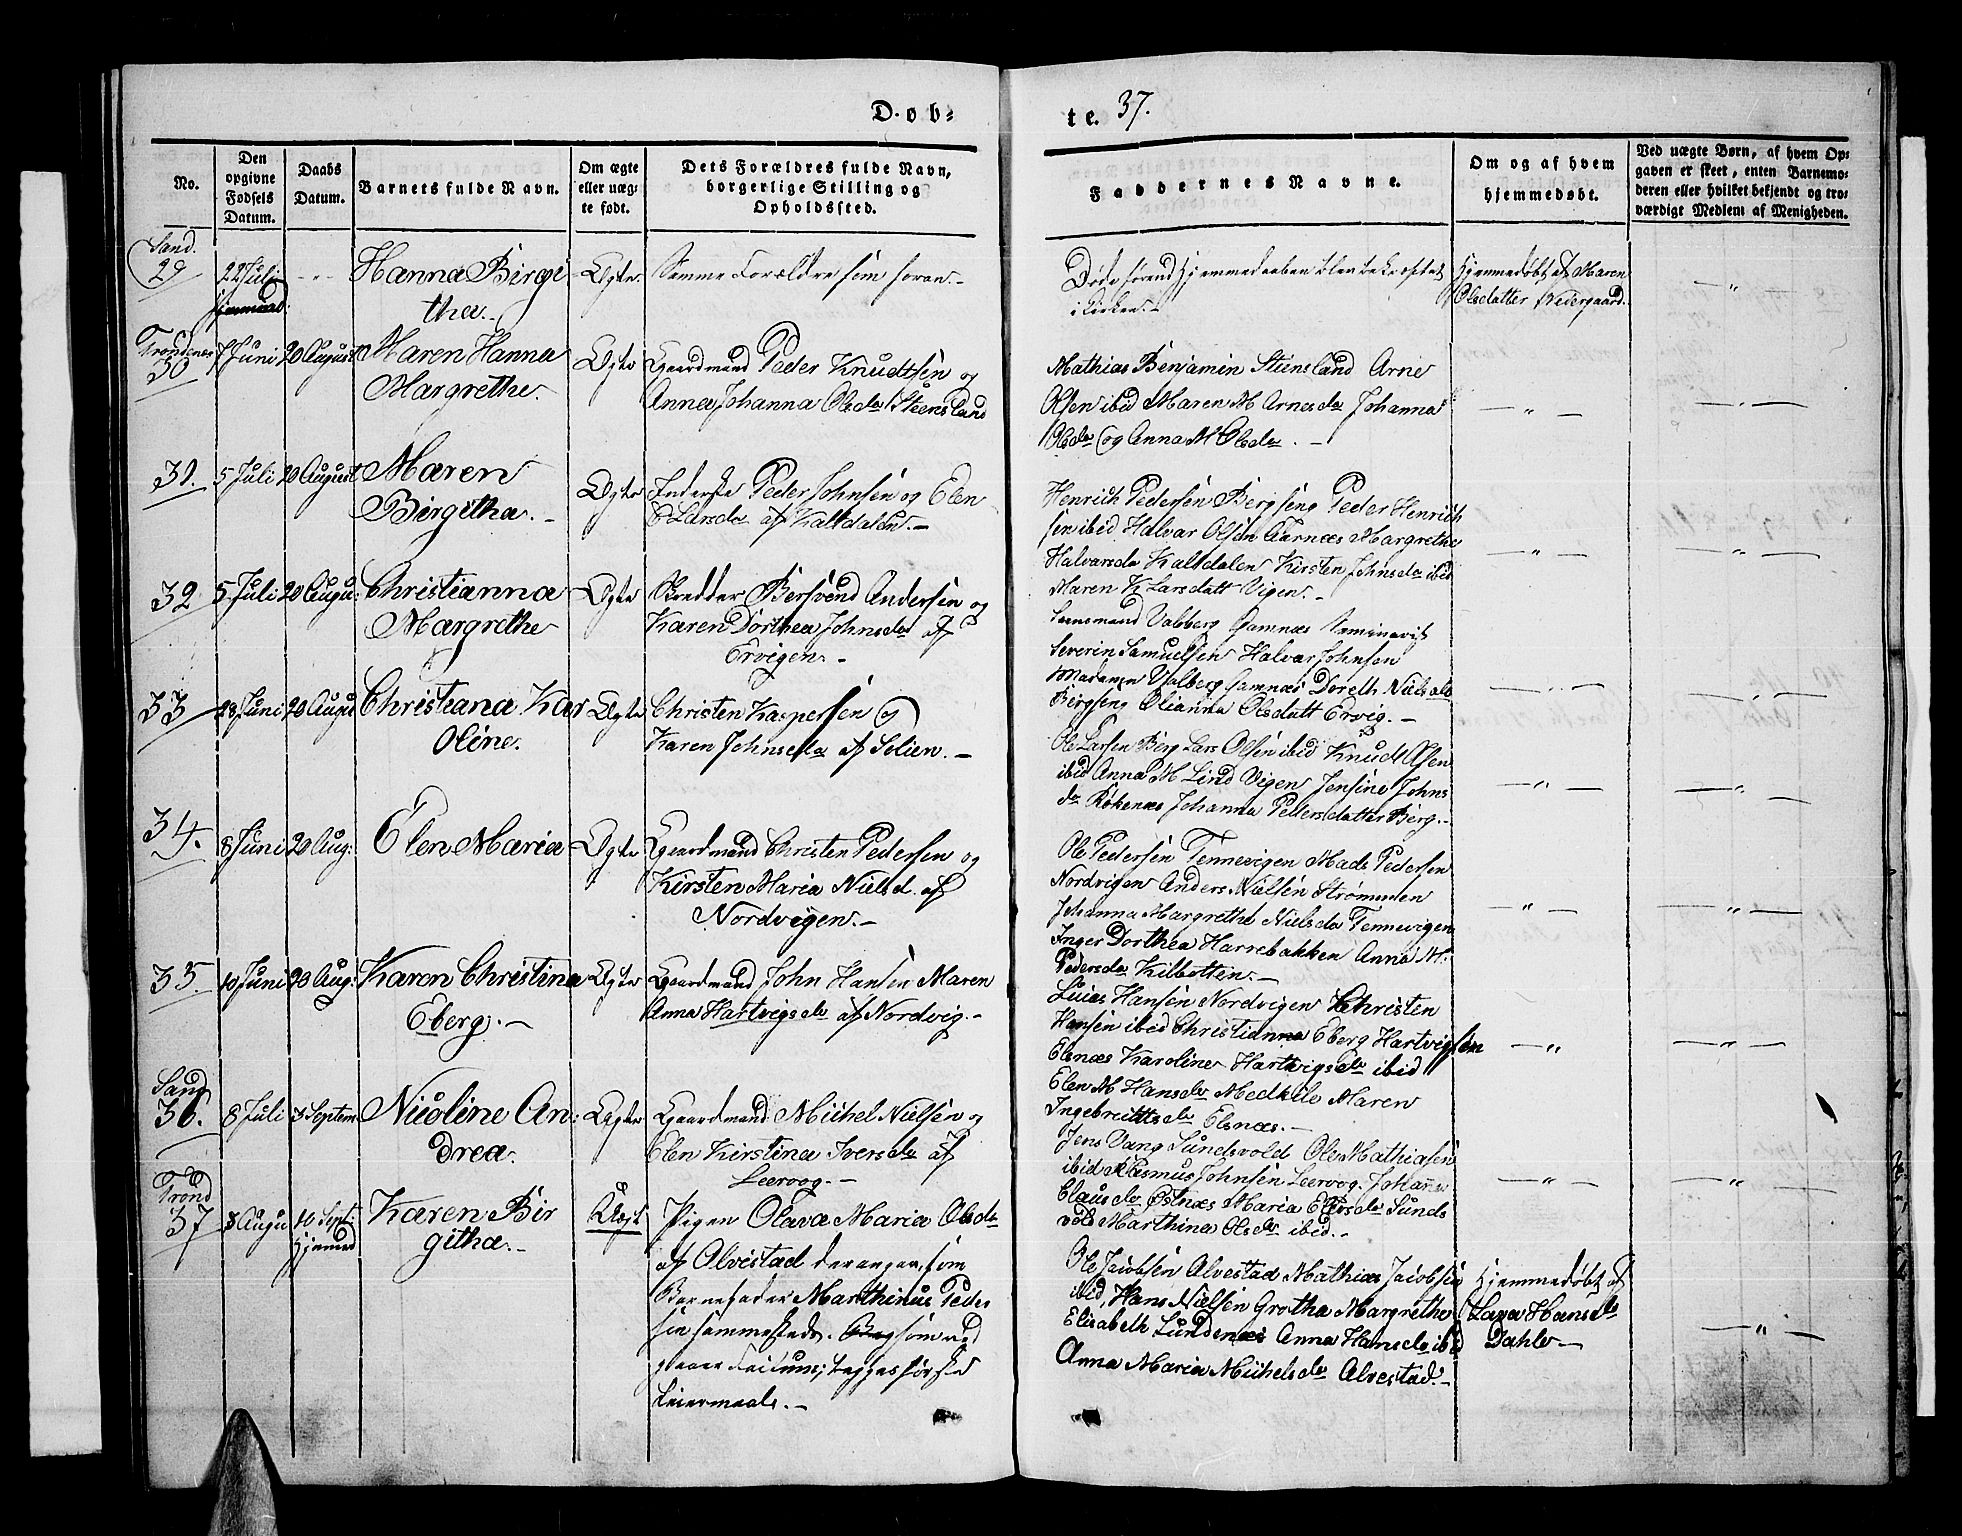 Døb-
te. 37.
No.
Den opgivne Fødsels Datum.
Daabs Datum.
Barnets fulde Navn.
Om ægte eller uægte født.
Dets Forældres fulde Navn, borgerlige Stilling og Opholdssted.
Faddernes Navne.
Om og af hvem hjemmedøbt.
Ved uægte Børn, af hvem Opgaven er skeet, enten Barnemoderen eller hvilket bekjendt og troværdigt Medlem af Menigheden.
Sand.
29
22 Juli
Hanna Birgi
tha.
Ægte
Samme Forældre som foran.
Døde førend Hjemmedaaben blev bekræftet
i Kirken.
Hjemmedøbt af Maren
Olsdatter Nedergaard.
Trondenes
30
7 Juni
20 August
Maren Hanna
Margrethe.
Ægte
Gaardmand Peder Knudtsen og
Anna Johanna Olsda Steensland
Mathias Benjamin Stensland Arne
Olsen ibid Maren M Arnesda Johanna
Olsda og Anna M Olsda.
31.
5 Juli
20 August
Maren
Birgitha.
Ægte
Inderste Peder Johnsen og Elen
E Larsda af Kaltdalen.
Henrich Pedersen Bergseng Peder Henrich
sen ibid Halvar Olsen Aarnæs Margrethe
Halvarsda Kaltdalen Kirsten Johnsda ibid
Maren K Larsdatt Vigen.
32
5 Juli
20 Augu:
Christianna
Margrethe
Ægte
Skredder Bersvend Andersen og
Karen Dorthea Johnsda af
Ervigen.
Lensmand Valberg Gamnæs
Severin Samuelsen Halvar Johnsen
Madamen Valberg Gamnæs Doreth Nielsda
Bergseng Olianna Olsdatt Ervig.
33
28 Juni
20 Augu
Christiana Kar
Oline.
Ægte
Christen Kaspersen og
Karen Johnsda af Solien.
Ole Larsen Berg Lars Olsen ibid Knud Olsen
ibid Anna M Lind Vigen Jensine Johns
da Røkenes Johanna Pedersdatter Berg.
34.
8 Juni
20 Aug:
Elen Maria
Ægte
Gaardmand Christen Pedersen og
Kirsten Maria Nielsd. af
Nordvigen.
Ole Pedersen Tennevigen Mads Pedersen
Nordvigen Anders Nielsen Strømmen
Johanna Margrethe Nielsda Tennevigen
Inger Dorthea Harrebakken Anna M:
Pedersda Kilbotten.
35.
10 Juni
20 Aug:
Karen Christina
Eberg.
Ægte
Gaardmand John Hansen Maren
Anna Hartvigsda af Nordvig.
Hansen Nordvigen Christen
Hansen ibid Christianna Eberg Hartvigsen
Elenæs Karoline Hartvigsda ibid
Elen M Hansda Medkile Maren
Ingebreittsda Elsnæs.
Sand
36.
8 Juli
3 Septem
Nicoline An:
drea.
Ægte
Gaardmand Michel Nielsen og
Elen Kirstina Iversda af
Leervog.
Jens Vang Sundsvold Ole Mathiasen
ibid Rasmus Johnsen Leervog. Johanna
Clausda Østnæs Maria Elersda Sunds
vold Marthina Olsda ibid.
Trond
37
3 Augu
10 Sept:
Hjemmed
Karen Bir
githa.
Uægt
Pigen Olava Maria Olsda
af Alvestad der angav som
Barnefader Marthinus Peder
sen sammesteds.
Leiermaals.
Ole Jacobsen Alvestad Mathias Jacobsen
ibid, Hans Nielsen Grotha Margrethe
Elisabeth Lundenæs Anna Hansda ibid
Anna Maria Michelsda Alvestad.
Hjemmedøbt af
Lava Hansda
Dahle